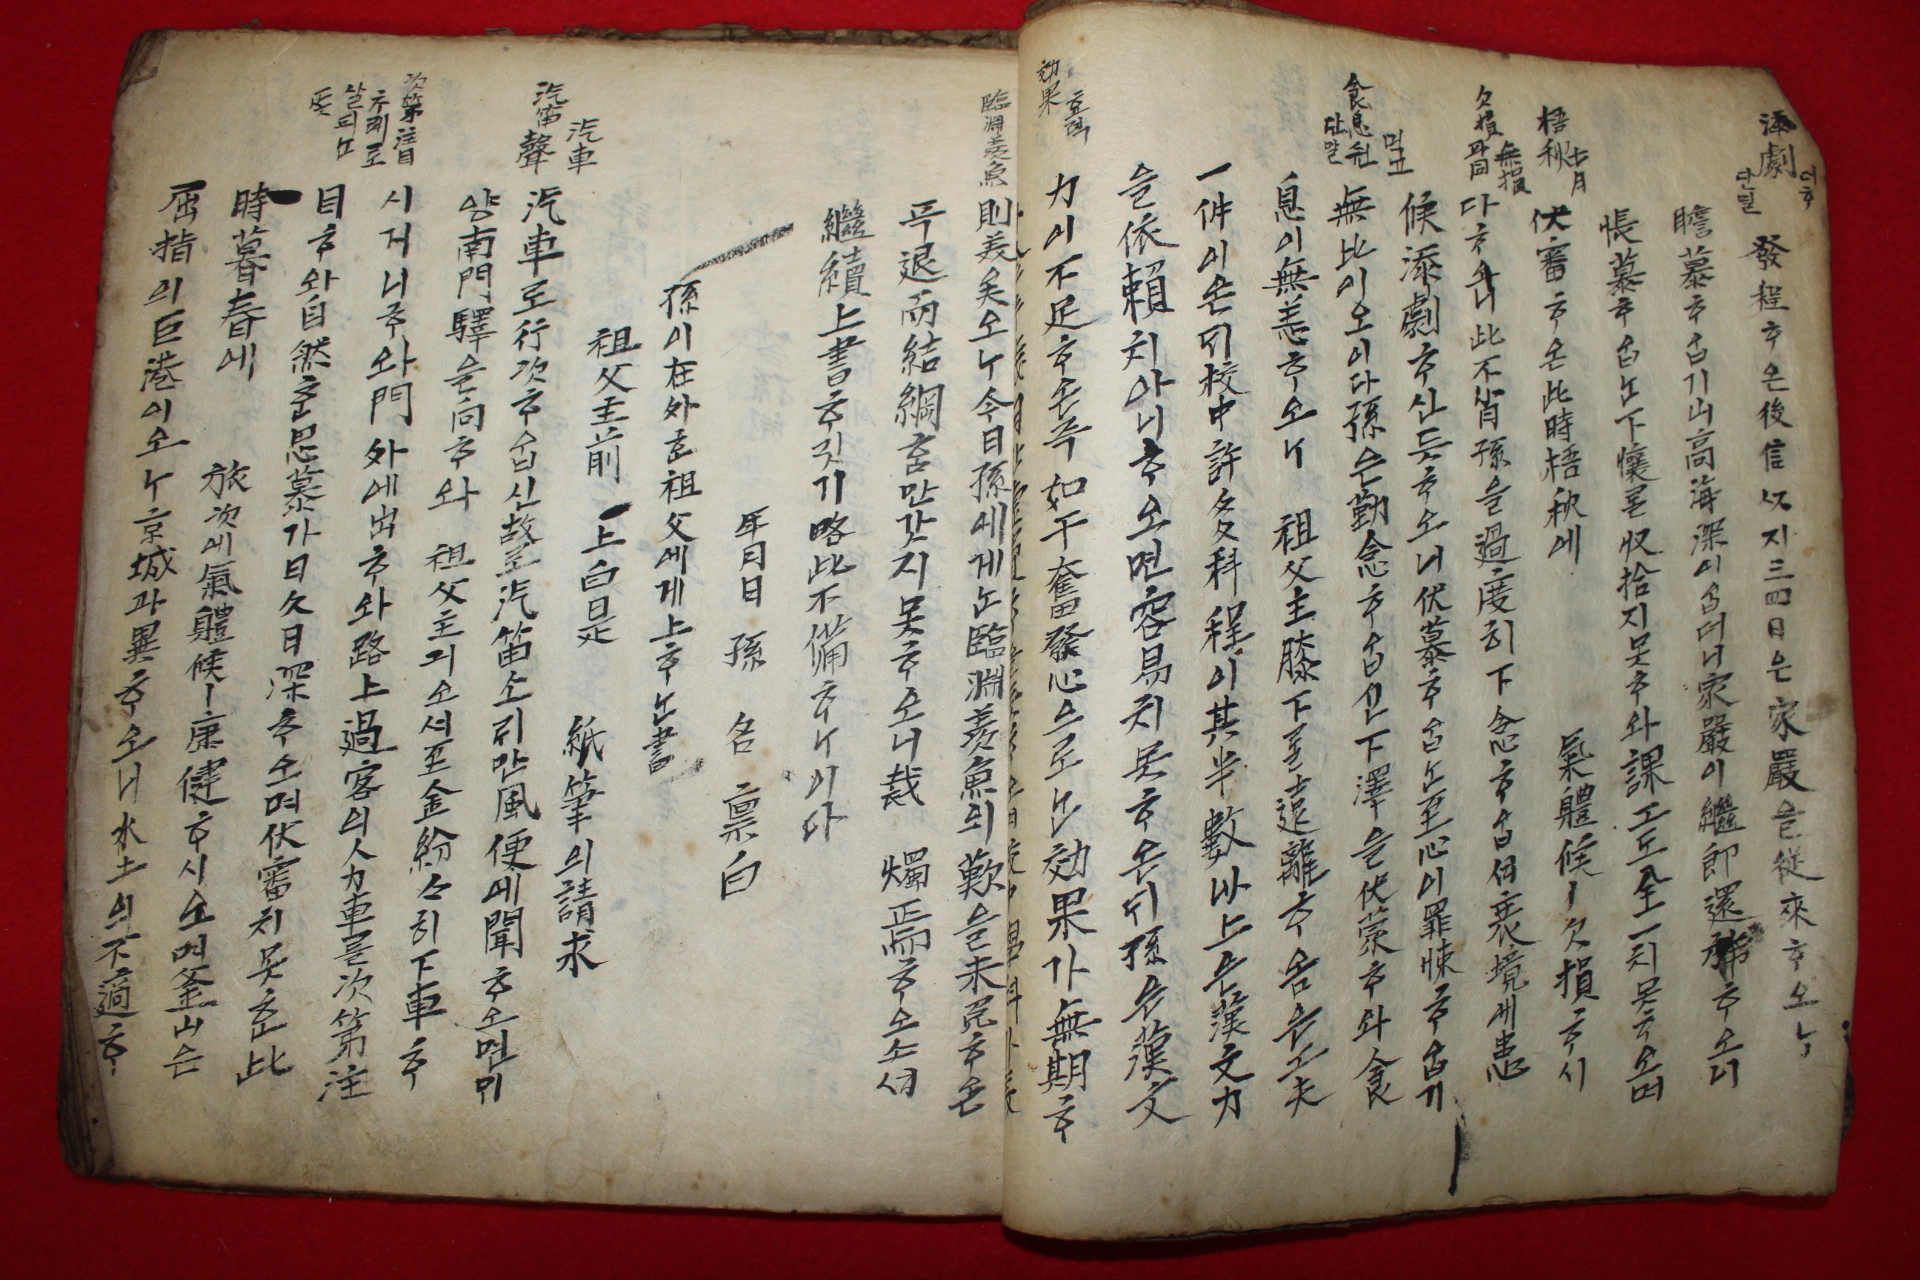 添劇 더흘
단밀
發程ᄒᆞ온後信以지三四日은家嚴을從來ᄒᆞ오ᄂᆞ
瞻慕ᄒᆞ옵기山高海深이옵더니家嚴이繼卽還
ᄒᆞ오니
悵慕ᄒᆞ옵ᄂᆞᆫ下懷를收拾지못ᄒᆞ와課工도全一치못ᄒᆞ오며
梧秋 七月
伏審ᄒᆞ온此時梧秋에
氣體候ㅣ欠損ᄒᆞ시
欠損 無損
다ᄒᆞ니此不肖孫을過度히下念ᄒᆞ옵
衰境에患
候添劇ᄒᆞ신듯ᄒᆞ오니伏慕ᄒᆞ옵ᄂᆞᆫ至心이罪悚ᄒᆞ옵기
食息 먹고
無比이오이다孫은勤念ᄒᆞ옵신下澤을伏蒙ᄒᆞ와食
息이無恙ᄒᆞ오ᄂᆞ 祖父主膝下를遠離ᄒᆞ옴은工夫
一件이온ᄃᆡ校中許多科程이其半數以上은漢文力
을依賴치아니ᄒᆞ오면容易치못ᄒᆞ온ᄃᆡ孫은漢文
効果 효력
力이不足ᄒᆞ온즉如干奮發心으로ᄂᆞᆫ効果가無期ᄒᆞ
臨淵羨魚
則美矣오ᄂᆞ今日孫에게ᄂᆞᆫ臨淵羨魚의歎을未免ᄒᆞ온
즉退而結網홈만갓지못ᄒᆞ오니裁 燭焉ᄒᆞ오소셔
繼續上書ᄒᆞ깃기略此不備ᄒᆞᄂᆞ이다
年月日 孫 名 稟白
孫이在外ᄒᆞᆫ祖父에게上ᄒᆞᄂᆞᆫ書
祖父主前 上白是
紙筆의請求
汽車
汽笛聲
汽車로行次ᄒᆞ옵신故로汽笛소ᄅᆡ만風便에聞ᄒᆞ오면ᄆᆡ
양南門驛을向ᄒᆞ와 祖父主ᄭᅴ소셔至金紛々히下車ᄒᆞ
시거니ᄒᆞ와門外에出ᄒᆞ와路上過客의人力車를次第注
次第注目
ᄎᆞ례로
살피ᄂᆞ
뜻
目ᄒᆞ와自然ᄒᆞᆫ思慕가日久日深ᄒᆞ오며伏審치못ᄒᆞᆫ此
時暮春에
旅次에氣體候ㅣ康健ᄒᆞ시오며釜山은
屈指의巨港이오ᄂᆞ京城과異ᄒᆞ오니水土의不適ᄒᆞ